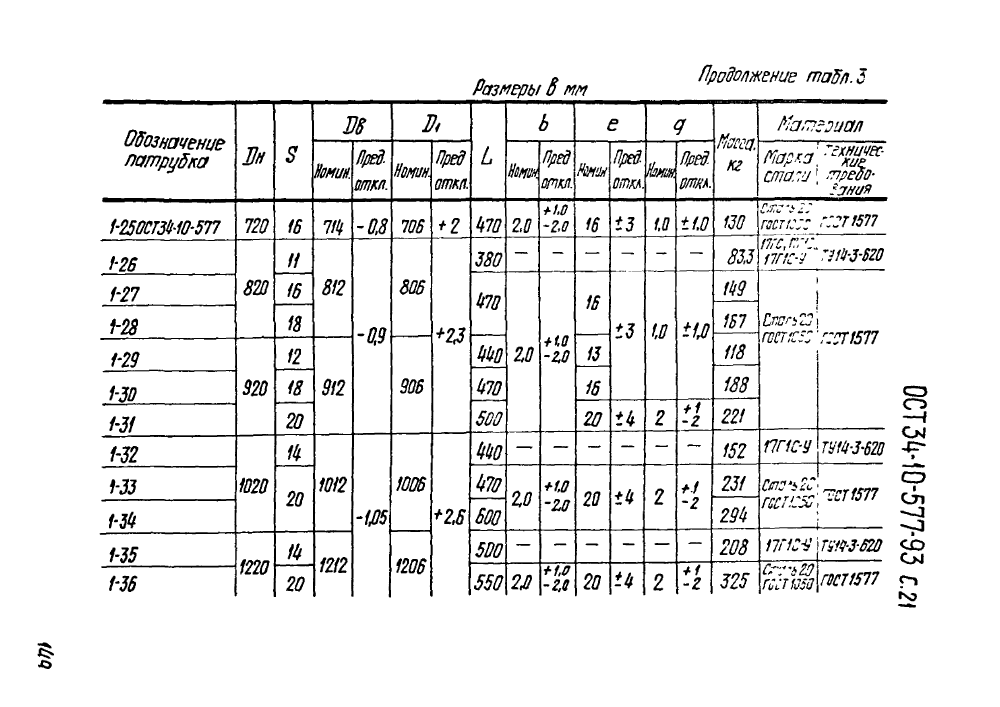 Продолжение табл. 3
Размеры в мм
Обозначение патрубка Dн S Dв D1 L b e q Масса, кг Материал
Номин. Пред. откл. Номин. Пред. откл. Номин. Пред. откл. Номин. Пред. откл. Номин. Пред. откл. Марка стали Технические требования
1-25 ОСТ34-10-577 720 16 714 -0,8 706 +2 470 2,0 +1,0 -2,0 16 ±3 1,0 ±1,0 130 Сталь 20 ГОСТ 1050 ГОСТ 1577
1-26 820 11 812 -0,9 806 +2,3 380 — — — — — — 83,3 17ГС, 17Г1С-У ТУ14-3-620
1-27 16 470 2,0 +1,0 -2,0 16 ±3 1,0 ±1,0 149 Сталь 20 ГОСТ 1050 ГОСТ 1577
1-28 18 167
1-29 920 12 912 906 440 13 118
1-30 18 470 16 188
1-31 20 500 20 ±4 2 +1 -2 221
1-32 1020 14 1012 -1,05 1006 +2,6 440 — — — — — — 152 17Г1С-У ТУ14-3-620
1-33 20 470 2,0 +1,0 -2,0 20 ±4 2 +1 -2 231 Сталь 20 ГОСТ 1050 ГОСТ 1577
1-34 600 294
1-35 1220 14 1212 1206 500 — — — — — — 208 17Г1С-У ТУ14-3-620
1-36 20 550 2,0 +1,0 -2,0 20 ±4 2 +1 -2 325 Сталь 20 ГОСТ 1050 ГОСТ 1577
ОСТ 34-10-577-93 С.21
149